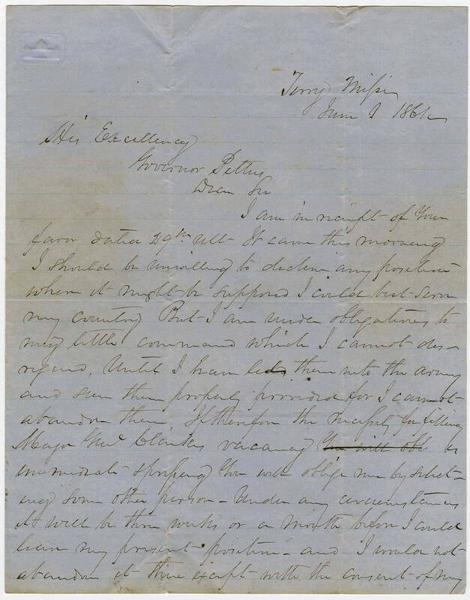 Terry Missi
June 1 1861
His Excellency
Governor Pettus
Dear Sir
I am in receipt of Your
favor dated 29th Ult It came this morning
I should be unwilling to decline any position
where it might be supposed I could best serve
my country But I am under obligations to
my little command which I cannot dis-
regard. Until I have led them into the army
and seen them properly provided for I cannot
abandon them. If therefore the necessity for filling
Major Genl Clarkes vacancy You will obl is
immediate & pressing You will oblige me by select-
ing some other person - Under any circumstances
it will be three weeks or a month before I could
leave my present position - and I would not
abandon it then except with the consent of my